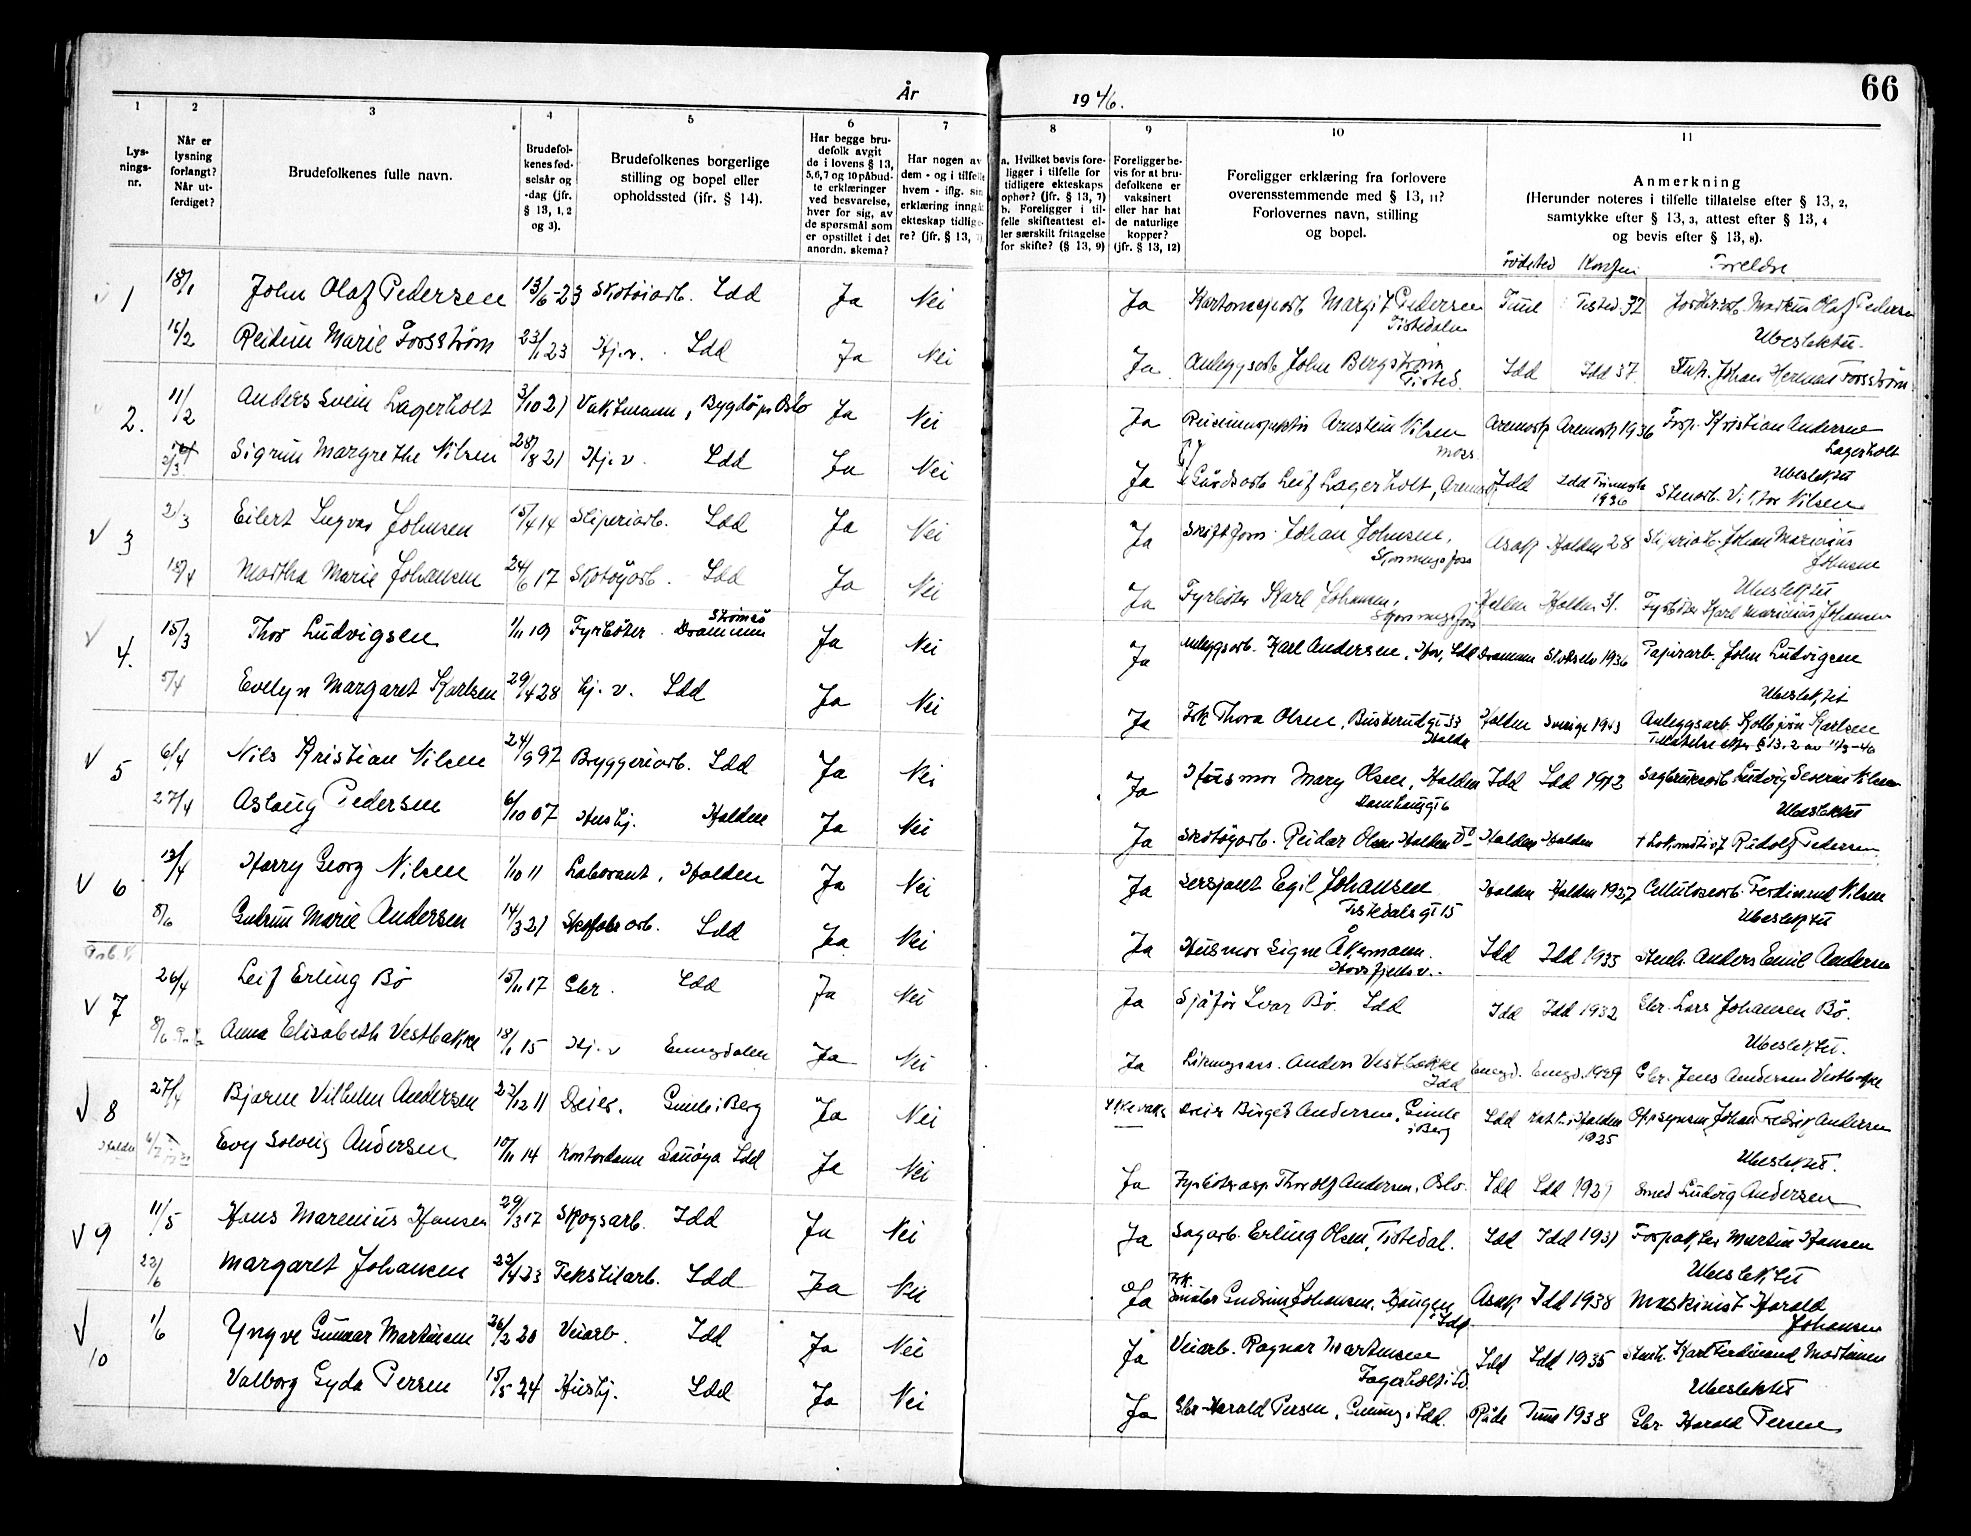 66
År 1946.
1 2 3 4 5 6 7 8 9 10 11
Lysningsnr.
Når er lysning forlangt? Når utferdiget?
Brudefolkenes fulle navn.
Brudefolkenes fødselsår og -dag (jfr. § 13, 1, 2 og 3).
Brudefolkenes borgerlige stilling og bopel eller opholdssted (jfr. § 14).
Har begge brudefolk avgit de i lovens § 13, 5, 6, 7 og 10 påbudte erklæringer ved besvarelse, hver for sig, av de spørsmål som er opstillet i det anordn. skema?
Har nogen av dem - og i tilfelle hvem - iflg. sin erklæring inngått ekteskap tidligere? (jfr. § 13,
a. Hvilket bevis foreligger i tilfelle for tidligere ekteskaps ophør? (jfr. § 13, 7) b. Foreligger i tilfelle skifteattest eller særskilt fritagelse for skifte? (§ 13, 9)
Foreligger bevis for at brudefolkene er vaksinert eller har hat de naturlige kopper? (jfr. § 13, 12)
Foreligger erklæring fra forlovere overensstemmende med § 13, 11? Forlovernes navn, stilling og bopel.
Anmerkning (Herunder noteres i tilfelle tillatelse efter § 13, 2, samtykke efter § 13, 3, attest efter § 13, 4 og bevis efter § 13, 8).
Fødested Konfir Foreldre
1 18/1 John Olaf Pedersen 13/6-23 Skotøiarb. Idd Ja Nei Ja Margit Pedersen Tistedalen Tune Tisted 37 Markus Olaf Pedersen
Ubeslektet.
16/2 Reidun Marie Forsström 23/1 23 Hj.v. Idd Ja Nei Ja Anleggsarb John Bergström Tisted. Idd Idd 37 Johan Herman Forsström
2. 11/2 Anders Svein Lagerholt 3/10 21 Vaktmann, Bygdø pr Oslo Ja Nei Ja Arnstein Nilsen Moss Aremark Aremark 1936 Forp. Kristian Andersen Lagerholt
Ubeslektet
2/3 Sigrun Margrethe Nilsen 28/8 21 Hj.v. Idd Ja Nei Ja Gårdsarb Leif Lagerholt, Idd Idd 1936 Stenarb. Viktor Nilsen
V 3 2/3 Eilert Ingvar Johnsen 15/4 14 Sliperiarb. Idd Ja Nei Ja Skiftform. Johan Johnsen, Skonningsfoss Asak Halden 28 Sliperiarb. Johan Marinius Johnsen
Ubeslektet
15/4 Martha Marie Johansen 24/6 17 Skotøyarb. Idd Ja Nei Ja Fyrbøter Karl Johansen, Skonningsfoss Halden Halden 31. Fyrbøter Karl Marinius Johansen
V 4. 15/3 Thor Ludvigsen 1/11 19 Fyrbøter Strømsø Drammen Ja Nei Ja Anleggsarb. Karl Andersen, Idd Drammen 1936 Papirarb. John Ludvigsen
Ubeslektet
5/4 Evelyn Margaret Karlsen 29/4 28 hj. v. Idd Ja Nei Ja Frk Thora Olsen, Buskerudgt 33 Halden Halden Sverige 1943 Anleggsarb. Kolbjørn Karlsen
Tillatelse efter § 13, 2 av 11/3-46
V 5 6/4 Nils Kristian Nilsen 24/9 97 Bryggeriarb. Idd Ja Nei Ja Husmor Mary Olsen, Halden Damhaugt 6 Idd Idd 1912 Sagbruksarb Ludvig Severin Nilsen
Ubeslektet
27/4 Aslaug Pedersen 6/10 07 Hushj. Halden Ja Nei Ja Skotøyarb. Reidar Olsen Halden Halden Halden † Lokomotivf Rudolf Pedersen
V 6 13/4 Harry Georg Nilsen 1/10 11 Laborant, Halden Ja Nei Ja Sersjant Egil Johansen Tistedalsgt 15 Halden Halden 1927 Cellulosearb. Ferdinand Nilsen
Ubeslektet
8/6 Gudrun Marie Andersen 14/3 21 Skofabr arb. Idd Ja Nei Ja Husmor Signe Åkermann. Idd Idd 1935 Anders Emil Andersen
V 7 26/4 Leif Erling Bø 15/11 17 Gbr. Idd Ja Nei Ja Sjåfør Ivar Bø. Idd Idd Idd 1932 Gbr. Lars Johansen Bø.
Ubeslektet.
8/6 Anna Elisabeth Vestbakke 18/1 15 Hj.v Enningdalen Ja Nei Ja Anders Vestbakke Idd Enngd. Enngd. 1929 Gbr. Jens Andersen Vestbakke
V 8 27/4 Bjarne Vilhelm Andersen 23/12 11 Dreier. Gimle i Berg Ja Nei Ikke vaks Dreier Birger Andersen, Gimle i Berg Idd Halden 1925 Oppsynsm Johan Fredrik Andersen
Ubeslektet.
Halden Evy Solveig Andersen 10/11 14 Kontordame Sauøya Idd Ja Nei Ja Thorolf Andersen, Oslo. Idd Idd 1929 Smed Ludvig Andersen
V 9 11/5 Hans Marenius Hansen 29/3 17 Skogsarb. Idd Ja Nei Ja Sagarb. Erling Olsen, Tistedal. Idd Idd 1931 Forpakter Martin Hansen
Ubeslektet
22/6 Margaret Johansen 22/4 23 Tekstilarb. Idd Ja Nei Ja Frk. Gudrun Johansen, Haugen i Idd Asak Idd 1938 Maskinist Harald Johansen
V 10 1/6 Yngve Gunnar Martinsen 26/2 20 Veiarb. Idd Ja Nei Ja Veiarb. Ragnar Martinsen Fagerholt i Id. Idd Idd 1935 Karl Ferdinand Martinsen
Ubeslektet
Valborg Gyda Persen 15/5 24 Hushj. Idd Ja Nei Ja Gbr Harald Persen, Idd. Råde Tune 1938 Gbr. Harald Persen